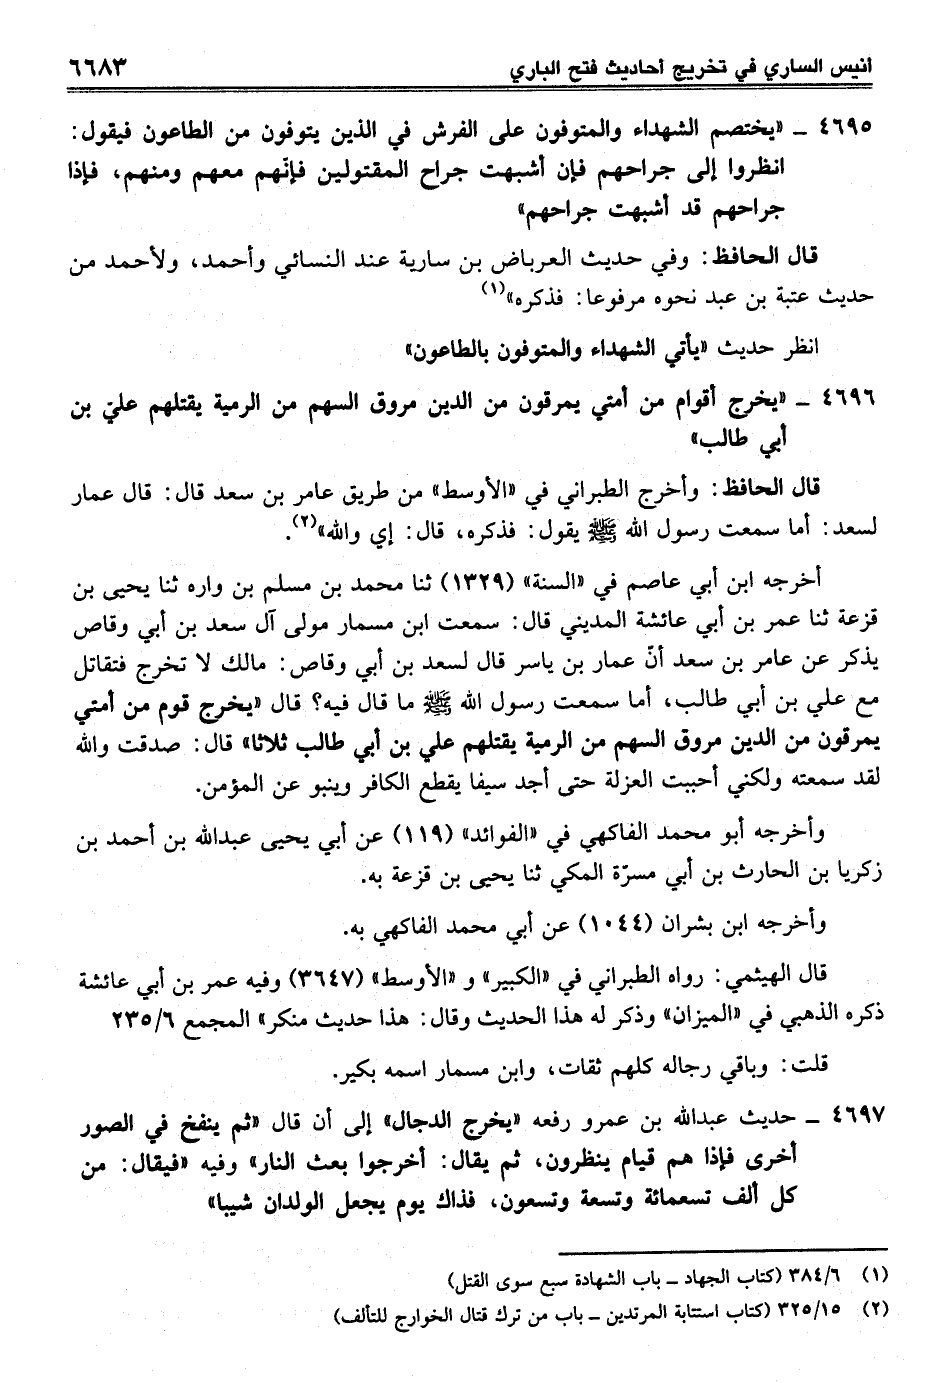 أنيس الساري في تخريج أحاديث فتح الباري
٦٦٨٣
٤٦٩٥ ـ «يختصم الشهداء والمتوفون على الفرش في الذين يتوفون من الطاعون فيقول:
انظروا إلى جراحهم فإن أشبهت جراح المقتولين فإنّهم معهم ومنهم، فإذا
جراحهم قد أشبهت جراحهم»
قال الحافظ: وفي حديث العرباض بن سارية عند النسائي وأحمد، ولأحمد من
حديث عتبة بن عبد نحوه مرفوعا: فذكره»(١)
انظر حديث «يأتي الشهداء والمتوفون بالطاعون»
٤٦٩٦ ـ «يخرج أقوام من أمتي يمرقون من الدين مروق السهم من الرمية يقتلهم عليّ بن
أبي طالب»
قال الحافظ: وأخرج الطبراني في «الأوسط» من طريق عامر بن سعد قال: قال عمار
لسعد: أما سمعت رسول الله ﷺ يقول: فذكره، قال: إي والله»(٢).
أخرجه ابن أبي عاصم في «السنة» (١٣٢٩) ثنا محمد بن مسلم بن واره ثنا يحيى بن
قزعة ثنا عمر بن أبي عائشة المديني قال: سمعت ابن مسمار مولى آل سعد بن أبي وقاص
يذكر عن عامر بن سعد أنّ عمار بن ياسر قال لسعد بن أبي وقاص: مالك لا تخرج فتقاتل
مع علي بن أبي طالب، أما سمعت رسول الله ﷺ ما قال فيه؟ قال «يخرج قوم من أمتي
يمرقون من الدين مروق السهم من الرمية يقتلهم علي بن أبي طالب ثلاثا» قال: صدقت والله
لقد سمعته ولكني أحببت العزلة حتى أجد سيفا يقطع الكافر وينبو عن المؤمن.
وأخرجه أبو محمد الفاكهي في «الفوائد» (١١٩) عن أبي يحيى عبدالله بن أحمد بن
زكريا بن الحارث بن أبي مسرّة المكي ثنا يحيى بن قزعة به.
وأخرجه ابن بشران (١٠٤٤) عن أبي محمد الفاكهي به.
قال الهيثمي: رواه الطبراني في «الكبير» و «الأوسط» (٣٦٤٧) وفيه عمر بن أبي عائشة
ذكره الذهبي في «الميزان» وذكر له هذا الحديث وقال: هذا حديث منكر» المجمع ٢٣٥/٦
قلت: وباقي رجاله كلهم ثقات، وابن مسمار اسمه بكير.
٤٦٩٧ ـ حديث عبدالله بن عمرو رفعه «يخرج الدجال» إلى أن قال «ثم ينفخ في الصور
أخرى فإذا هم قيام ينظرون، ثم يقال: أخرجوا بعث النار» وفيه «فيقال: من
كل ألف تسعمائة وتسعة وتسعون، فذاك يوم يجعل الولدان شيبا»
(١) ٣٨٤/٦ (كتاب الجهاد ـ باب الشهادة سبع سوى القتل)
(٢) ٣٢٥/١٥ (كتاب استتابة المرتدين ـ باب من ترك قتال الخوارج للتألف)